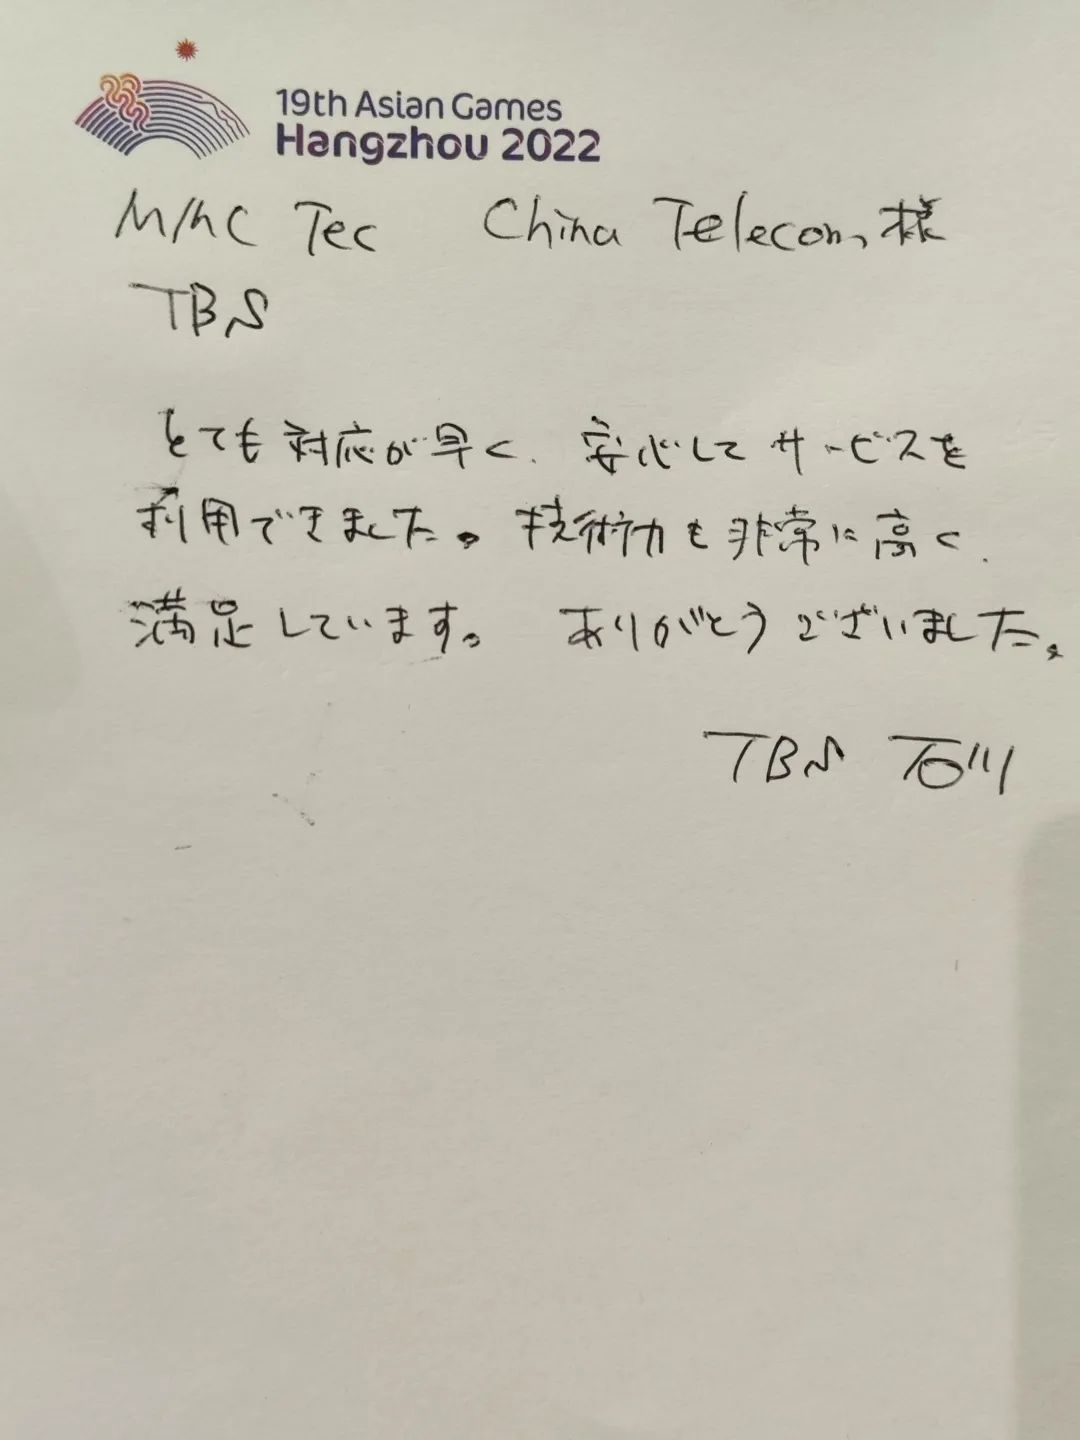 19th Asian Games
Hangzhou 2022
M/MC Tec China Telecom様
TBS
とても対応が早く、安心してサービスを
利用できました。技術力も非常に高く、
満足しています。ありがとうございました。
TBS 石川